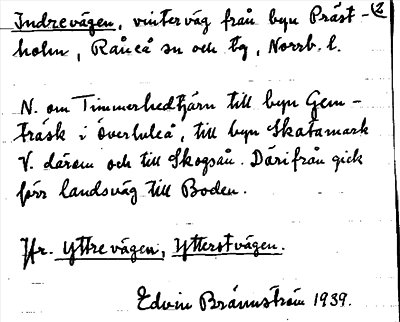 Indrevägen, vinterväg från byn Präst- 2
holm, Råneå sn och tg, Norrb. l.
N. om Timmerhedtjärn till byn Gem-
träsk i Överluleå, till byn Skatamark
V. därom och till Skogsån. Därifrån gick
förr landsväg till Boden.
Jfr. Yttrevägen, Ytterstvägen.
Edvin Brännström 1939.